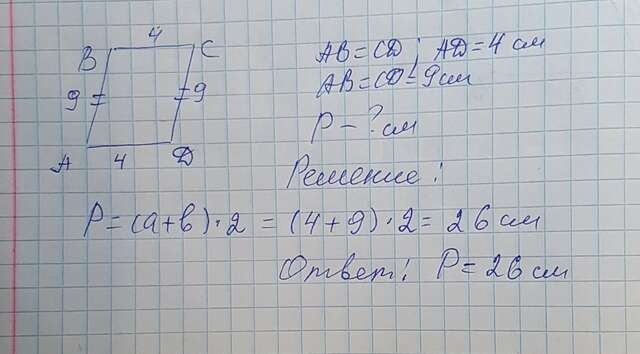 4
B C
9 9
A 4 D
AB = CD; AD = 4 см
AB = CD = 9 см
P – ? см
Решение:
P = (a + b) · 2 = (4 + 9) · 2 = 26 см
Ответ: P = 26 см